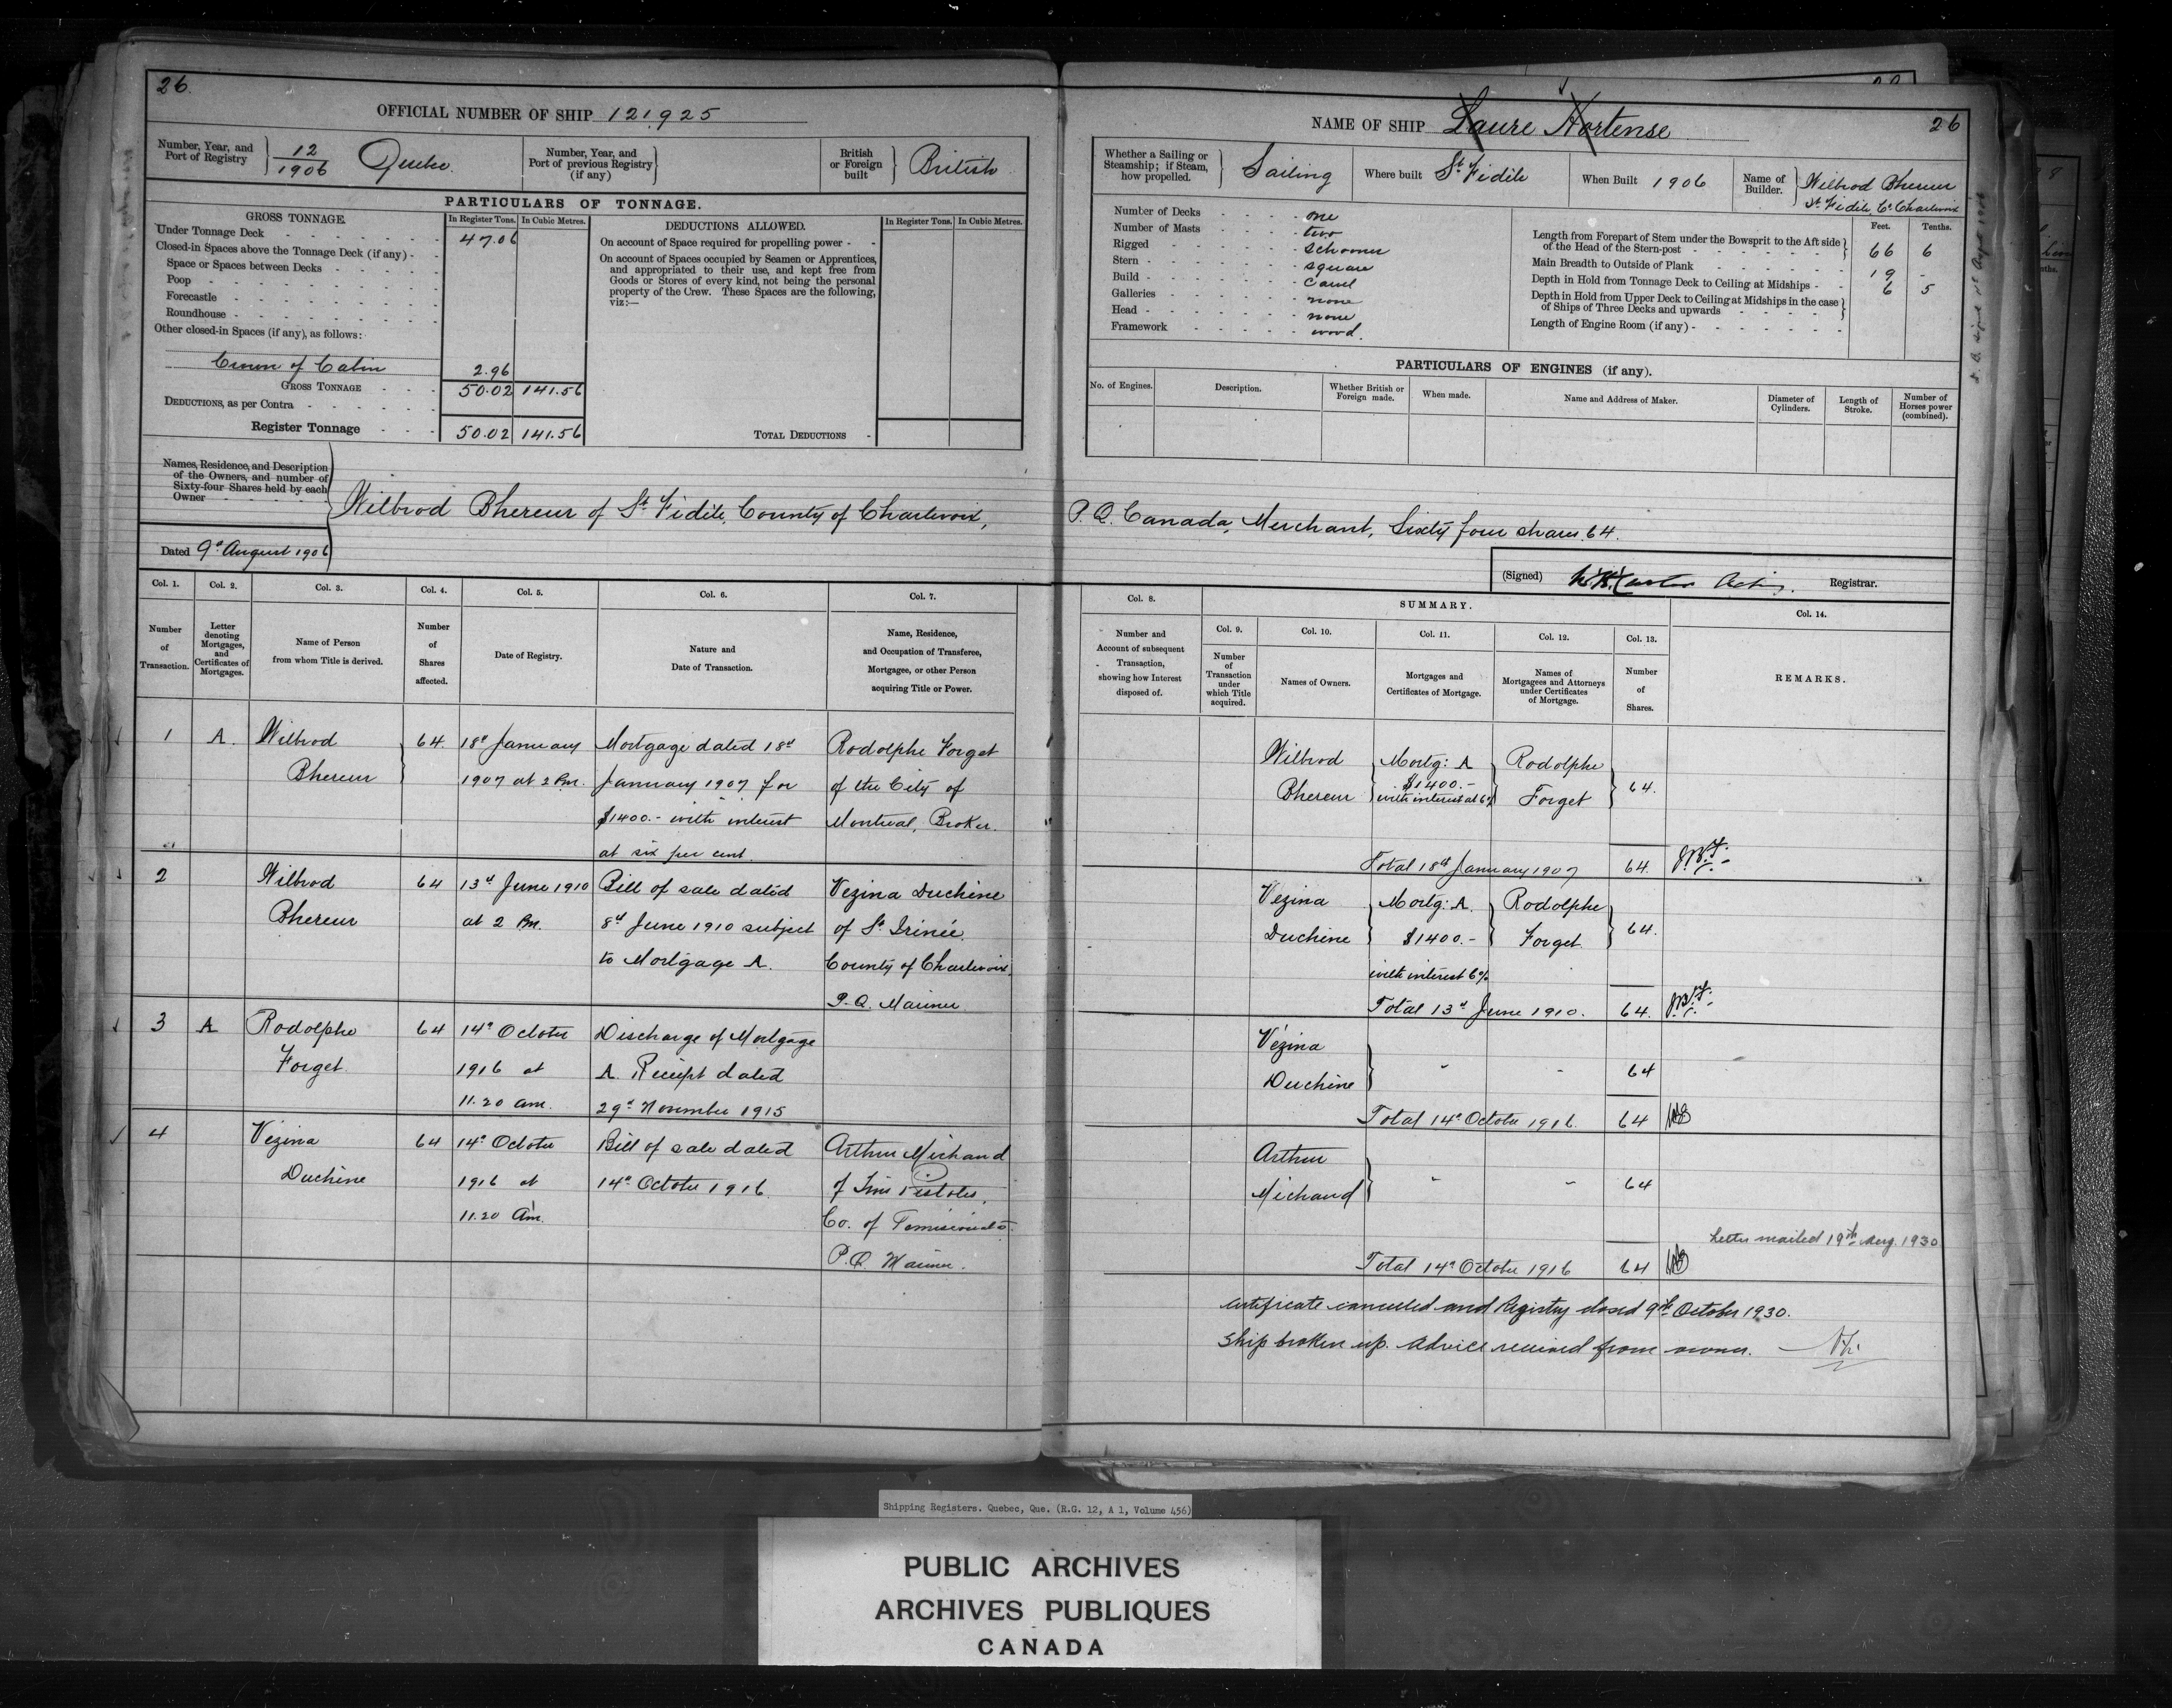 26.
OFFICIAL NUMBER OF SHIP 121,925
Number, Year, and Port of Registry 12/1906 Quebec.
Number, Year, and Port of previous Registry (if any)
British or Foreign built British
PARTICULARS OF TONNAGE.
GROSS TONNAGE.
In Register Tons. In Cubic Metres.
Under Tonnage Deck 47.06
Closed-in Spaces above the Tonnage Deck (if any)
Space or Spaces between Decks
Poop
Forecastle
Roundhouse
Other closed-in Spaces (if any), as follows:
Crown of Cabin 2.96
GROSS TONNAGE 50.02 141.56
DEDUCTIONS, as per Contra
Register Tonnage 50.02 141.56
DEDUCTIONS ALLOWED.
In Register Tons. In Cubic Metres.
On account of Space required for propelling power
On account of Spaces occupied by Seamen or Apprentices,
and appropriated to their use, and kept free from
Goods or Stores of every kind, not being the personal
property of the Crew. These Spaces are the following,
viz:—
TOTAL DEDUCTIONS
NAME OF SHIP Laure Hortense
26
Whether a Sailing or Steamship; if Steam, how propelled. Sailing
Where built St. Fidèle
When Built 1906
Name of Builder. Wilbrod Bhereur
St. Fidèle, Co. Charlevoix
Number of Decks one
Number of Masts two
Rigged schooner
Stern square
Build carvel
Galleries none
Head none
Framework wood.
Feet. Tenths.
Length from Forepart of Stem under the Bowsprit to the Aft side of the Head of the Stern-post 66 6
Main Breadth to Outside of Plank 19 -
Depth in Hold from Tonnage Deck to Ceiling at Midships 6 5
Depth in Hold from Upper Deck to Ceiling at Midships in the case of Ships of Three Decks and upwards
Length of Engine Room (if any)
PARTICULARS OF ENGINES (if any).
No. of Engines.
Description.
Whether British or Foreign made.
When made.
Name and Address of Maker.
Diameter of Cylinders.
Length of Stroke.
Number of Horses power (combined).
Names, Residence, and Description
of the Owners, and number of
Sixty-four Shares held by each
Owner
Wilbrod Bhereur of St. Fidèle, County of Charlevoix, P.Q. Canada, Merchant, Sixty four shares 64.
Dated 9th August 1906
(Signed) Acting Registrar.
Col. 1. Col. 2. Col. 3. Col. 4. Col. 5. Col. 6. Col. 7.
Number of Transaction.
Letter denoting Mortgages, and Certificates of Mortgages.
Name of Person from whom Title is derived.
Number of Shares affected.
Date of Registry.
Nature and Date of Transaction.
Name, Residence, and Occupation of Transferee, Mortgagee, or other Person acquiring Title or Power.
1 A. Wilbrod Bhereur 64.
18th January
1907 at 2 Pm.
Mortgage dated 18th
January 1907 for
$1400.- with interest
at six per cent.
Rodolphe Forget
of the City of
Montreal, Broker.
2 Wilbrod Bhereur 64
13th June 1910
at 2 Pm.
Bill of sale dated
8th June 1910 subject
to Mortgage A.
Vezina Duchine
of St. Irinée,
County of Charlevoix,
P.Q. Mariner
3 A Rodolphe Forget 64
14th October
1916 at
11.20 am.
Discharge of Mortgage
A. Receipt dated
29th November 1915
4 Vezina Duchine 64
14th October
1916 at
11.20 Am.
Bill of sale dated
14th October 1916.
Arthur Michaud
of Trois Pistoles,
Co. of Temiscouata
P.Q. Mariner.
Col. 8.
SUMMARY.
Col. 9. Col. 10. Col. 11. Col. 12. Col. 13. Col. 14.
Number and Account of subsequent Transaction, showing how Interest disposed of.
Number of Transaction under which Title acquired.
Names of Owners.
Mortgages and Certificates of Mortgage.
Names of Mortgagees and Attorneys under Certificates of Mortgage.
Number of Shares.
REMARKS.
Wilbrod Bhereur
Mortg: A
$1400.-
with interest at 6%
Rodolphe Forget
64.
Total 18th January 1907 64.
Vezina Duchine
Mortg: A.
$1400.-
with interest 6%
Rodolphe Forget
64.
Total 13th June 1910. 64.
Vezina Duchine - - 64
Total 14th October 1916. 64
Arthur Michaud - - 64
Letter mailed 19th Aug. 1930
Total 14th October 1916 64
Certificate cancelled and Registry closed 9th October 1930.
Ship broken up. Advice received from owner.
Shipping Registers. Quebec, Que. (R.G. 12, A 1, Volume 456)
PUBLIC ARCHIVES
ARCHIVES PUBLIQUES
CANADA